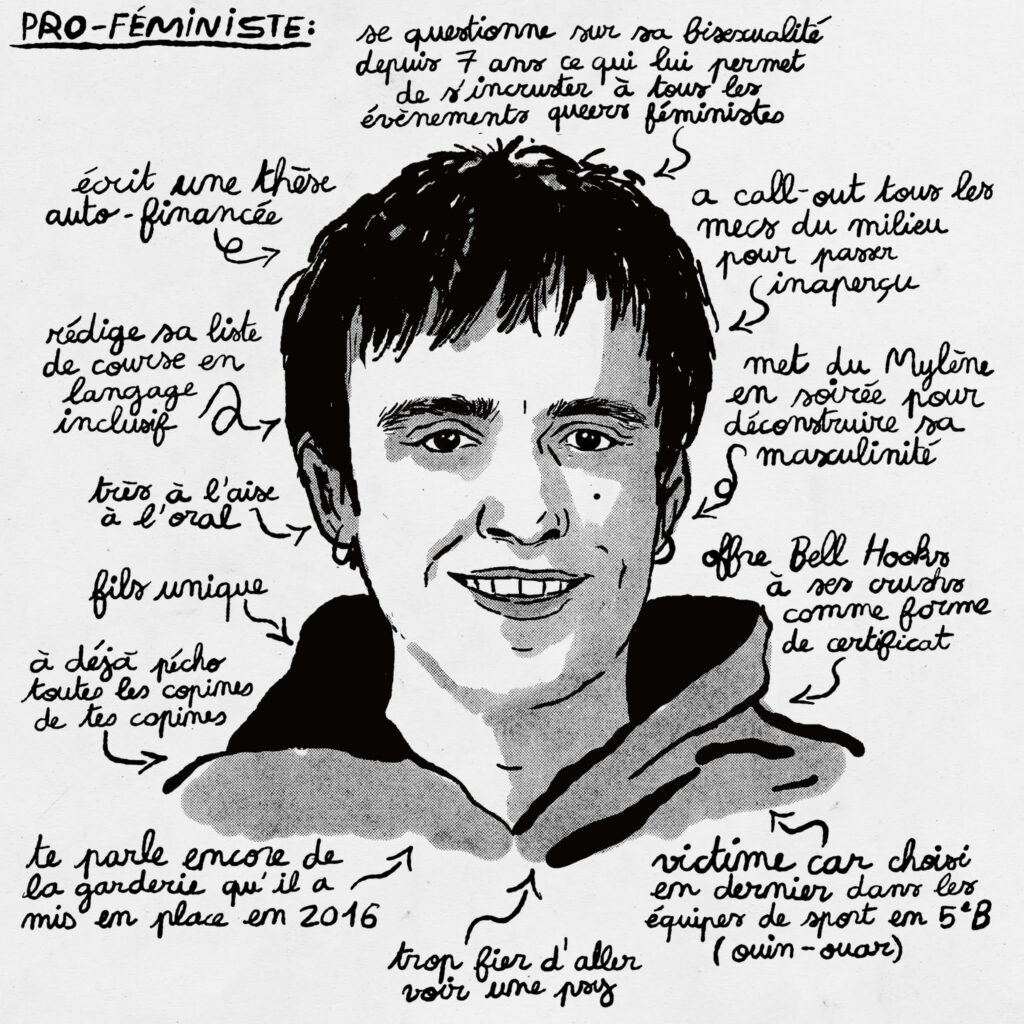 PRO-FÉMINISTE:
se questionne sur sa bisexualité
depuis 7 ans ce qui lui permet
de s'incruster à tous les
évènements queers féministes
écrit une thèse
auto-financée
a call-out tous les
mecs du milieu
pour passer
inaperçu
rédige sa liste
de course en
langage
inclusif
met du Mylène
en soirée pour
déconstruire sa
masculinité
très à l'aise
à l'oral
offre Bell Hooks
à ses crushs
comme forme
de certificat
fils unique
à déjà pécho
toutes les copines
de tes copines
te parle encore de
la garderie qu'il a
mis en place en 2016
victime car choisi
en dernier dans les
équipes de sport en 5eB
(ouin-ouar)
trop fier d'aller
voir une psy